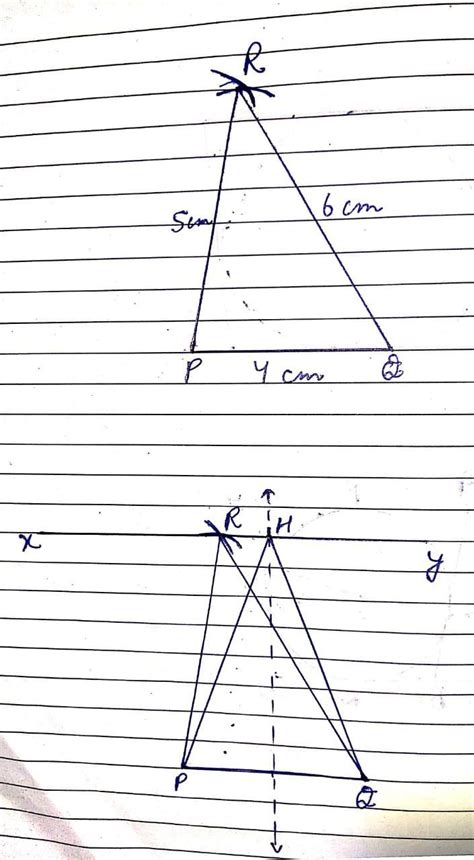 R
5cm
6 cm
P
4 cm
Q
R
H
x
y
P
Q